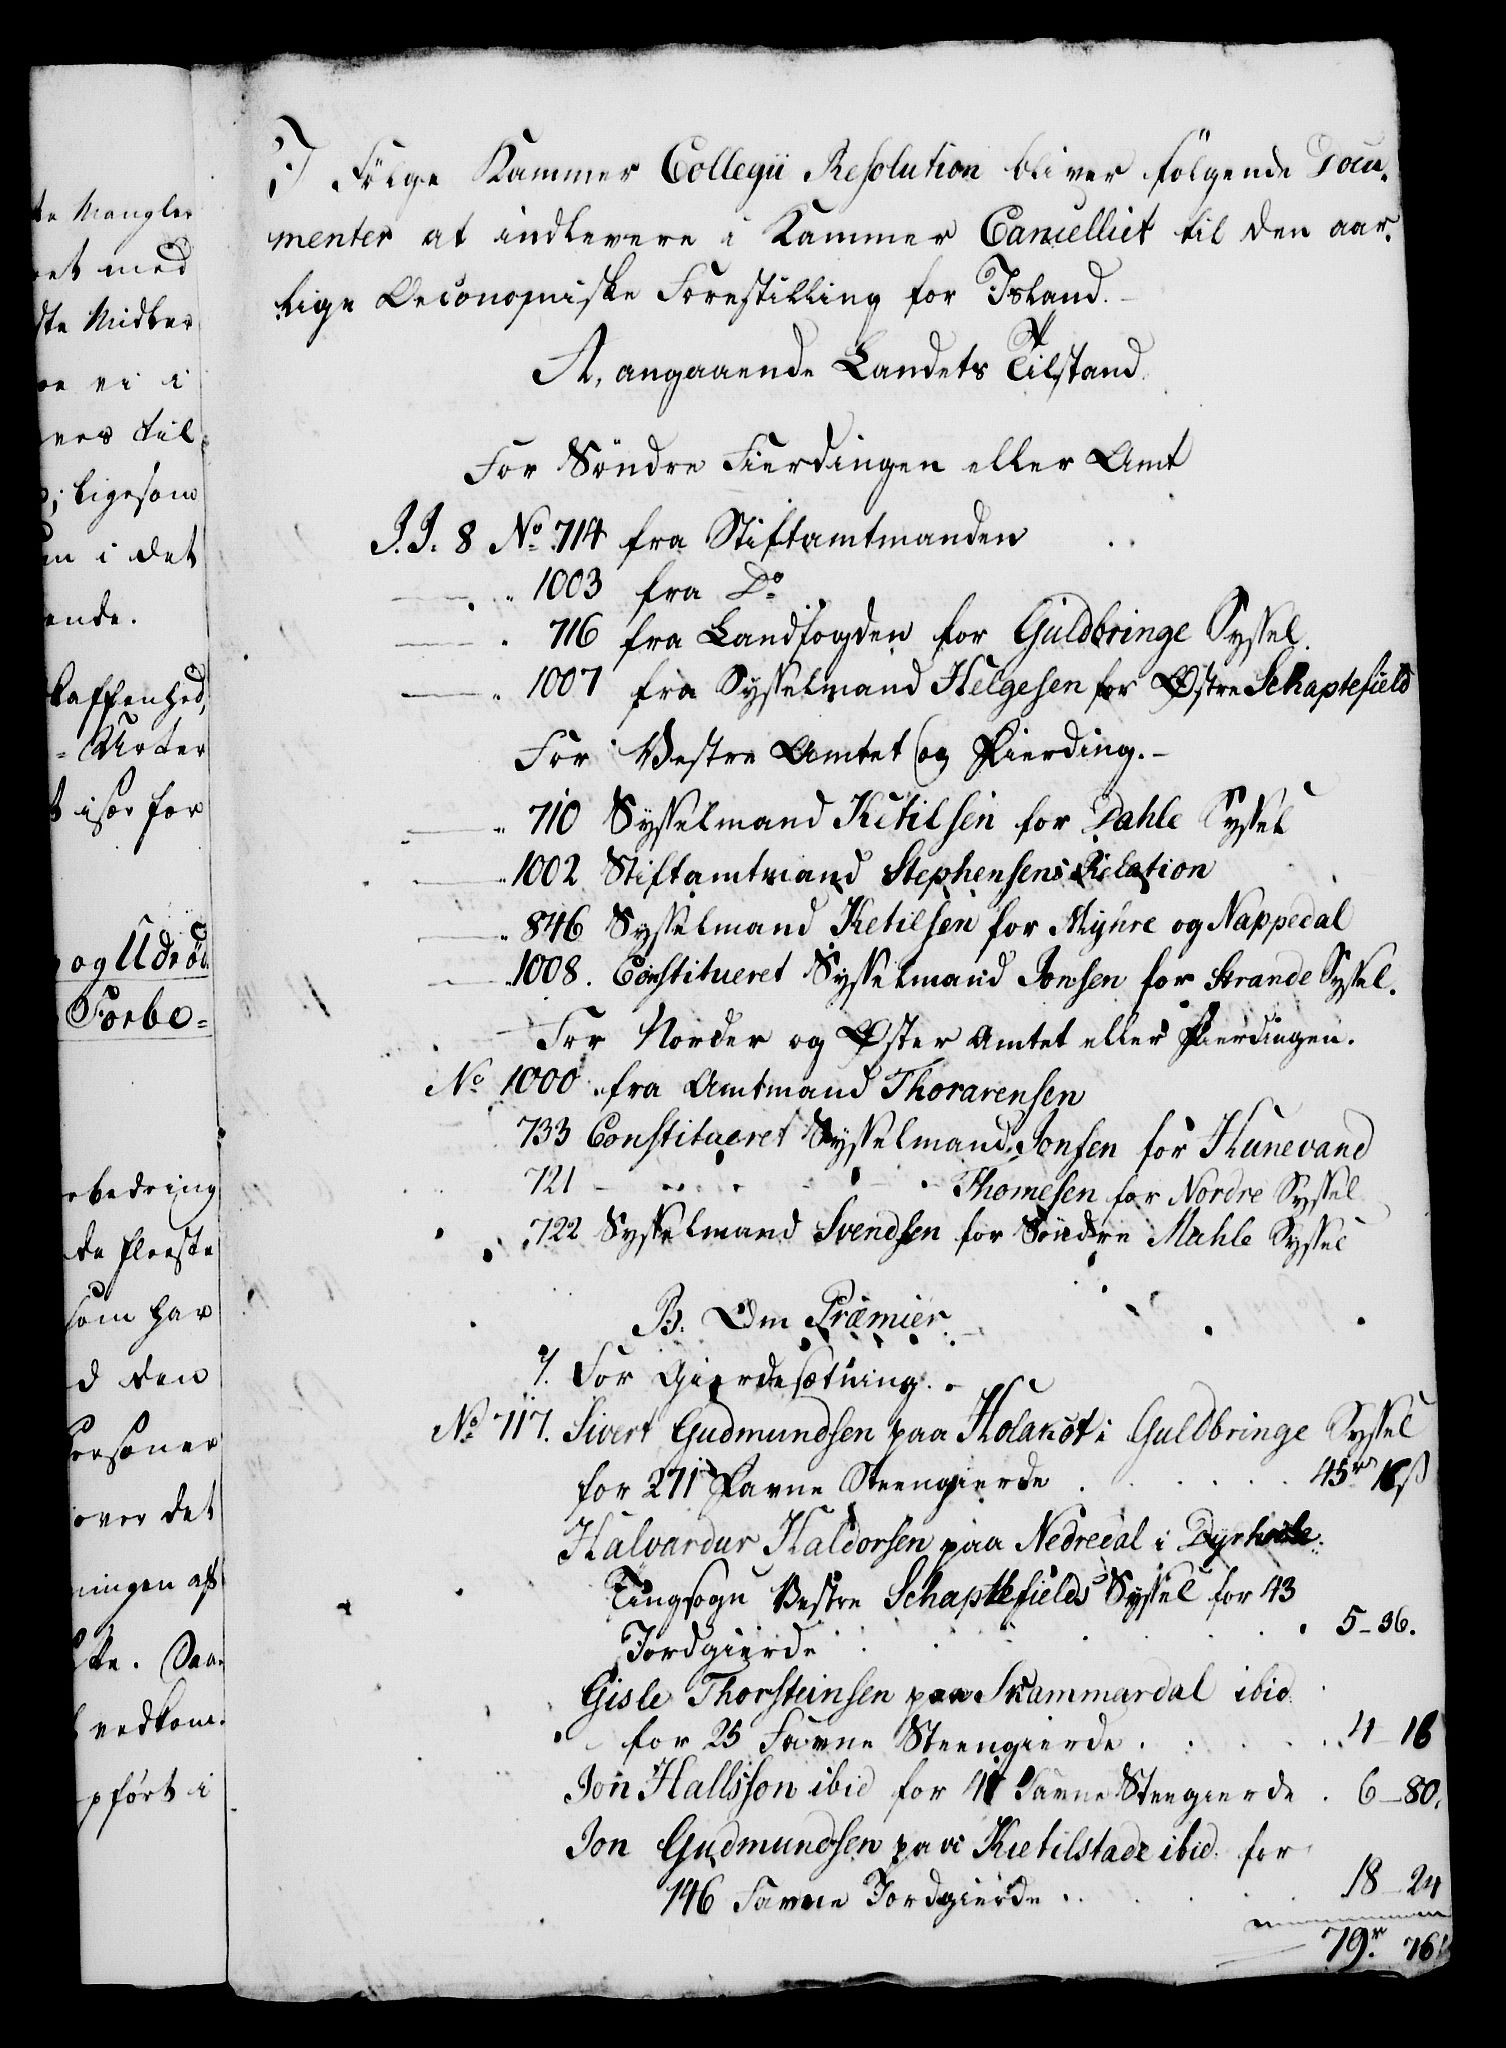 te Mangler
et med
dte Midler
re vi i
ver til
ligesom
m i det
ende.
kaffenhed,
= Urter
t især for
og Udrød
Forbe=
rbedring
de fleeste
som har
d den
Personer
over det
ningen af
kke. Saa
vedkom.
pført i
I Følge Kammer Collegii Resolution bliver følgende Docu-
menter at indlevere i Kammer Cancelliet til den aar-
lige Oeconomiske Forestilling for Island. -
A, angaaende Landets Tilstand.
For Söndre Fierdingen eller Amt
J.J. 8 No 714 fra Stiftamtmanden
— „ 1003 fra Do
— „ 716 fra Landfogden for Guldbringe Syssel
— „ 1007 fra Sysselmand Helgesen for Østre Schaptefield
For Vestre Amtet og Fierding. -
— „ 710 Sysselmand Ketilsen for Dahle Syssel
— „ 1002 Stiftamtmand Stephensens Relation
— „ 846 Sysselmand Ketilsen for Myhre og Nappedal
— „ 1008. Constitueret Sysselmand Jonsen for Strande Syssel.
For Norder og Øster Amtet eller Fierdingen.
No 1000 fra Amtmand Thorarensen
733 Constitueret Sysselmand Jonsen for Hunevand
721 - - - - Thomesen for Nordre Syssel
722 Sysselmand Svendsen for Söndre Mahle Syssel
B. Om Præmier.
1. For Gierdesætning. -
No 717. Sivert Gudmundsen paa Holakot i Guldbringe Syssel
for 271 Favne Steengierde . . . . 45r 16ß
Halvardur Haldorsen paa Nedredal i Dyrhole
Tingsogn Vestre Schaptefields Syssel for 43
Jordgierde . . . . . . 5-36.
Gisle Thorsteinsen paa Skammardal ibid.
for 25 Favne Steengierde . . . . 4-16
Jon Hallsson ibid for 41 Favne Steengierde . 6-80.
Jon Gudmundsen paa Kietilstade ibid. for
146 Favne Jordgierde . . . . 18-24
79r. 76ß